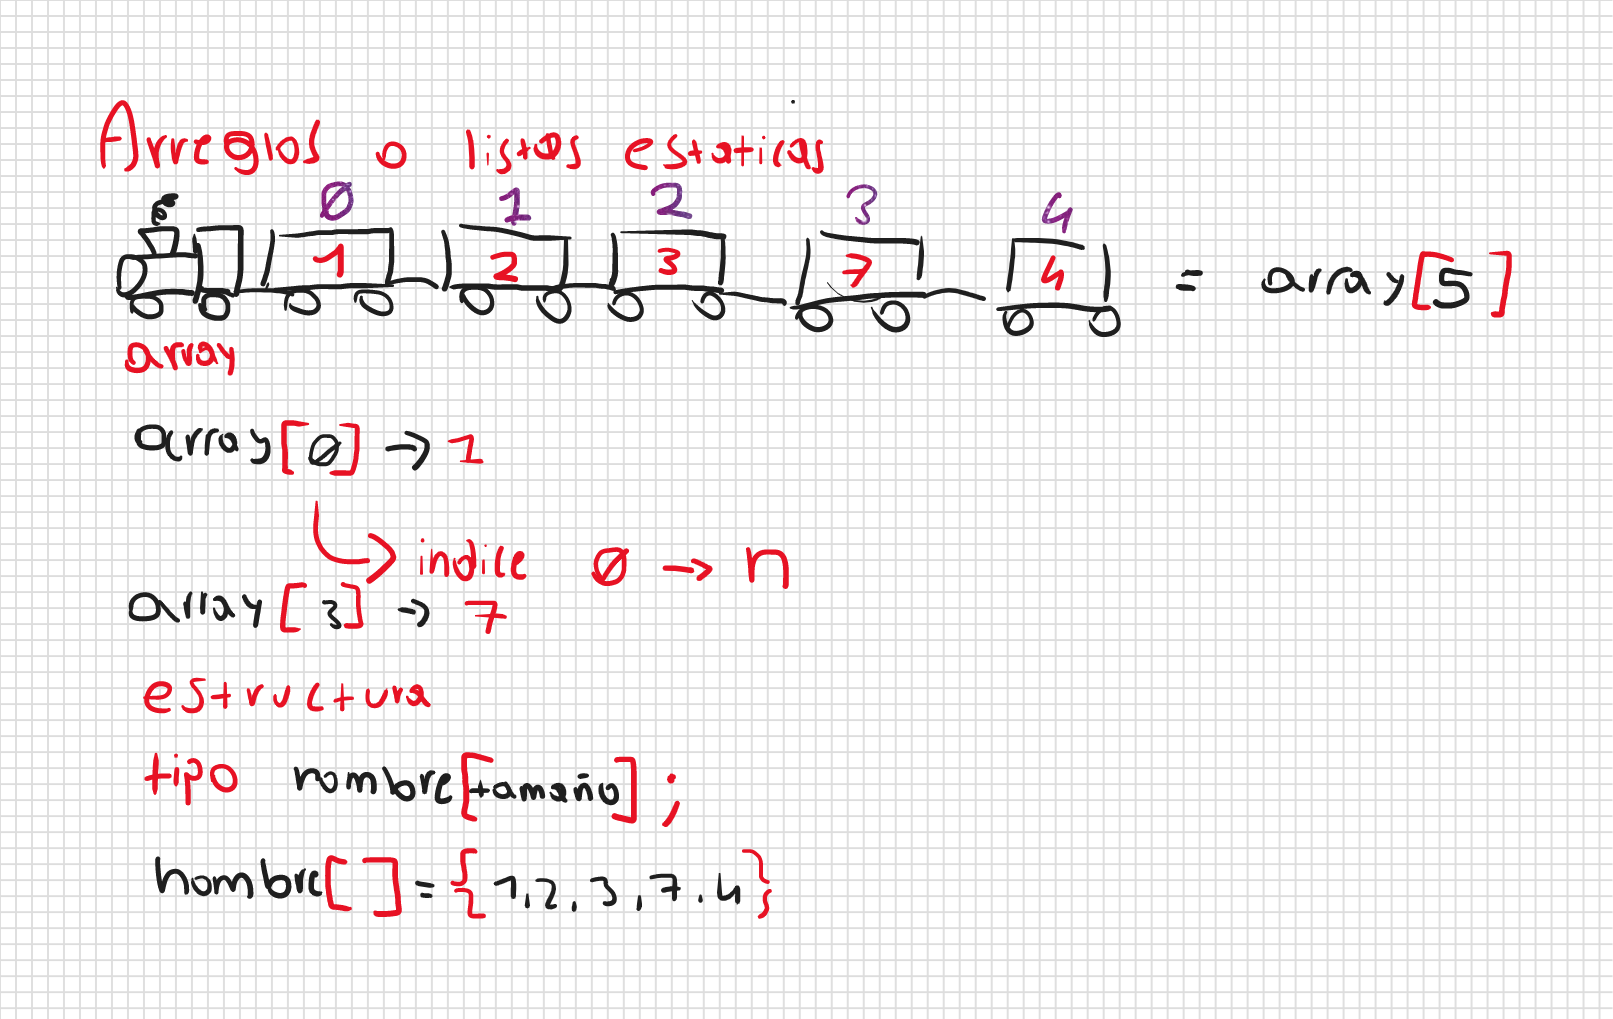 Arreglos o listas estaticas
0 1 2 3 4
1 2 3 7 4 = array[5]
array
array[0] → 1
indice 0 → n
array[3] → 7
estructura
tipo nombre[tamaño];
nombre[ ] = {1,2,3,7.4}